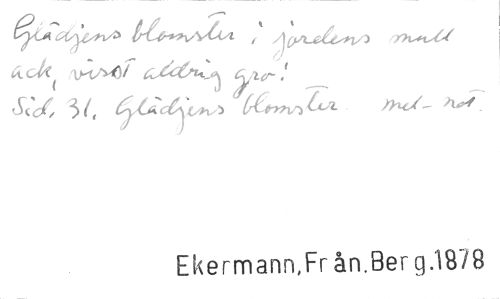 Glädjens blomster i jordens mull
ack, visst aldrig gro!
Sid. 31. Glädjens blomster. mel-not.
Ekermann,Från.Berg.1878